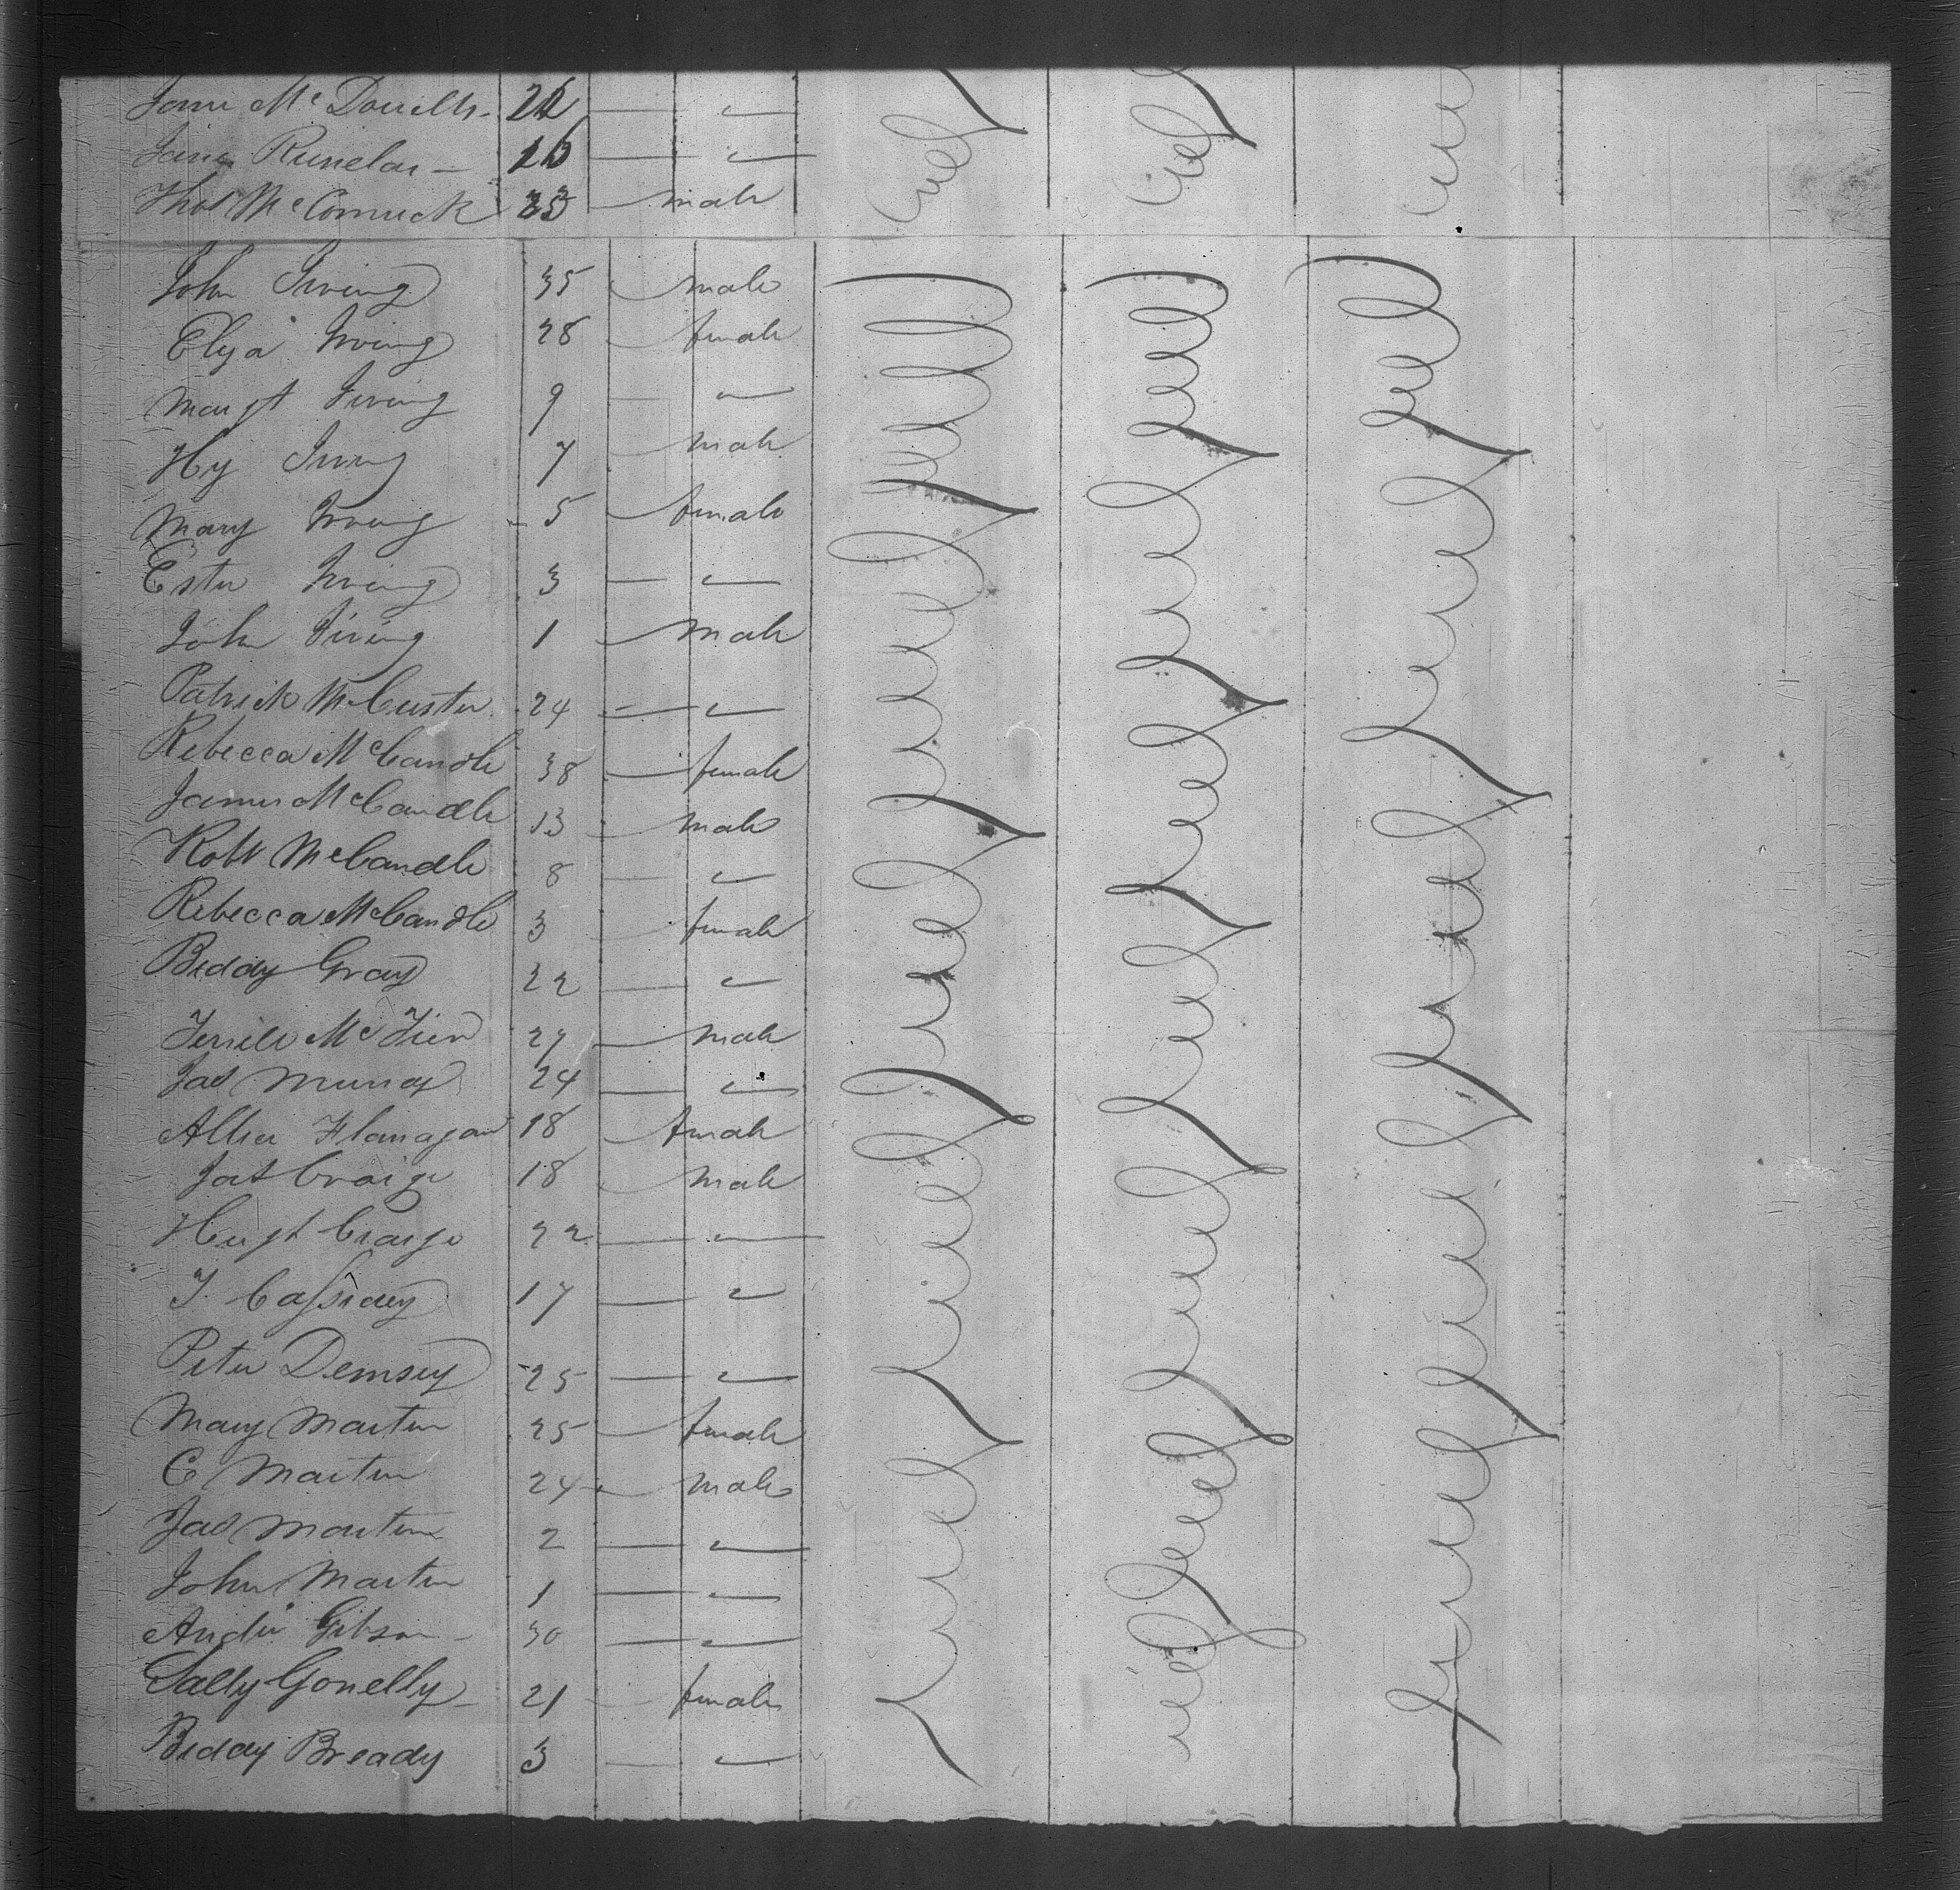 Jane McDonells - 22 — "
Jane — 16 — "
Thos McCormick 35 — male
John Irving 35 — male
Eliza Irving 28 — female
Margt Irving 9 — "
Hy Irving 7 — male
Mary Irving 5 — female
Ester Irving 3 — "
John Irving 1 — male
Patrick McCuster 24 — "
Rebecca McCandle 38 — female
James McCandle 13 — male
Robt McCandle 8 — "
Rebecca McCandle 3 — female
Biddy Gray 22 — "
27 — male
Jas Murray 24 — "
Flanagan 18 — female
Jas Craige 18 — male
Hugh Craige 22 — "
J. Cassidey 17 — "
Peter Demsey 25 — "
Mary Martin 25 — female
C Martin 24 — male
Jas Martin 2 — "
John Martin 1 — "
Andw Gibson - 30 — "
Sally Gonelly 21 — female
Bidday Bready 3 — "